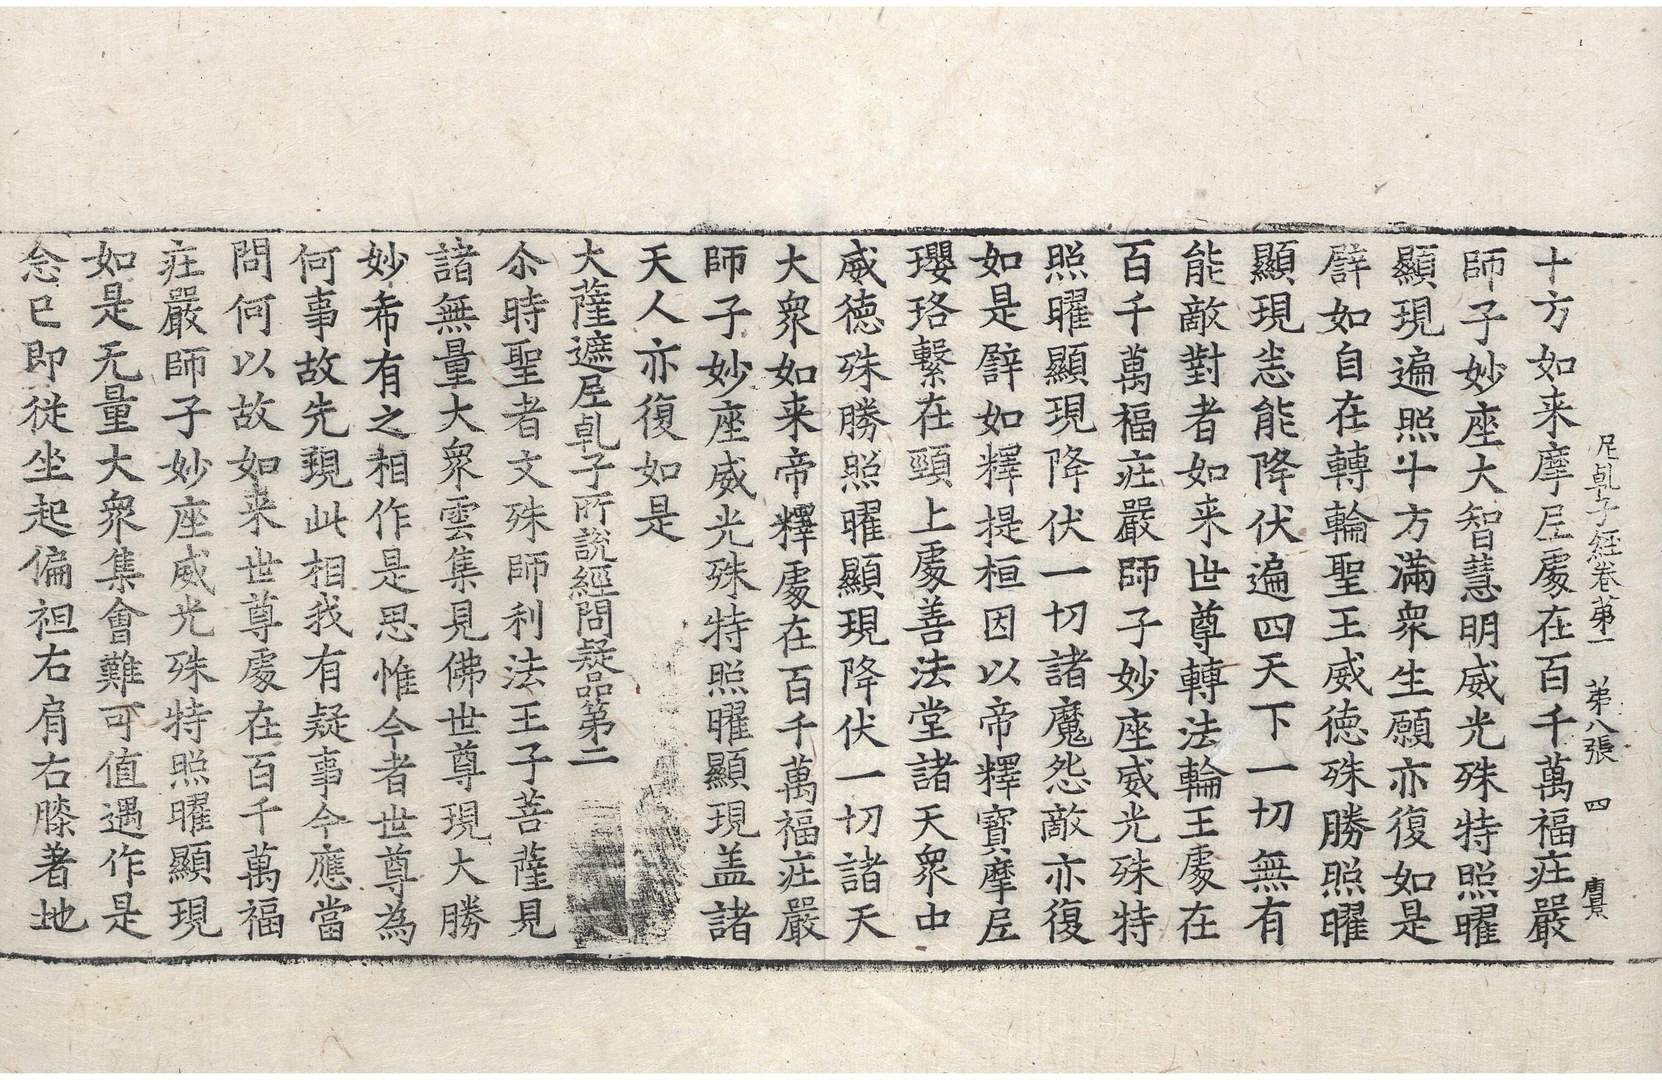 尼乹子経卷第一 第八張 四 賡
十方如来摩尼處在百千萬福庄嚴
師子妙座大智慧明威光殊特照曜
顯現遍照十方滿衆生願亦復如是
譬如自在轉輪聖王威德殊勝照曜
顯現悉能降伏遍四天下一切無有
能敵對者如来世尊轉法輪王處在
百千萬福庄嚴師子妙座威光殊特
照曜顯現降伏一切諸魔怨敵亦復
如是譬如釋提桓因以帝釋寶摩尼
瓔珞繫在頸上處善法堂諸天衆中
威德殊勝照曜顯現降伏一切諸天
大衆如来帝釋處在百千萬福庄嚴
師子妙座威光殊特照曜顯現盖諸
天人亦復如是
大薩遮尼乹子所說經問疑品第二
尒時聖者文殊師利法王子菩薩見
諸無量大衆雲集見佛世尊現大勝
妙希有之相作是思惟今者世尊為
何事故先現此相我有疑事今應當
問何以故如来世尊處在百千萬福
庄嚴師子妙座威光殊特照曜顯現
如是无量大衆集會難可值遇作是
念已即從坐起偏袒右肩右膝著地